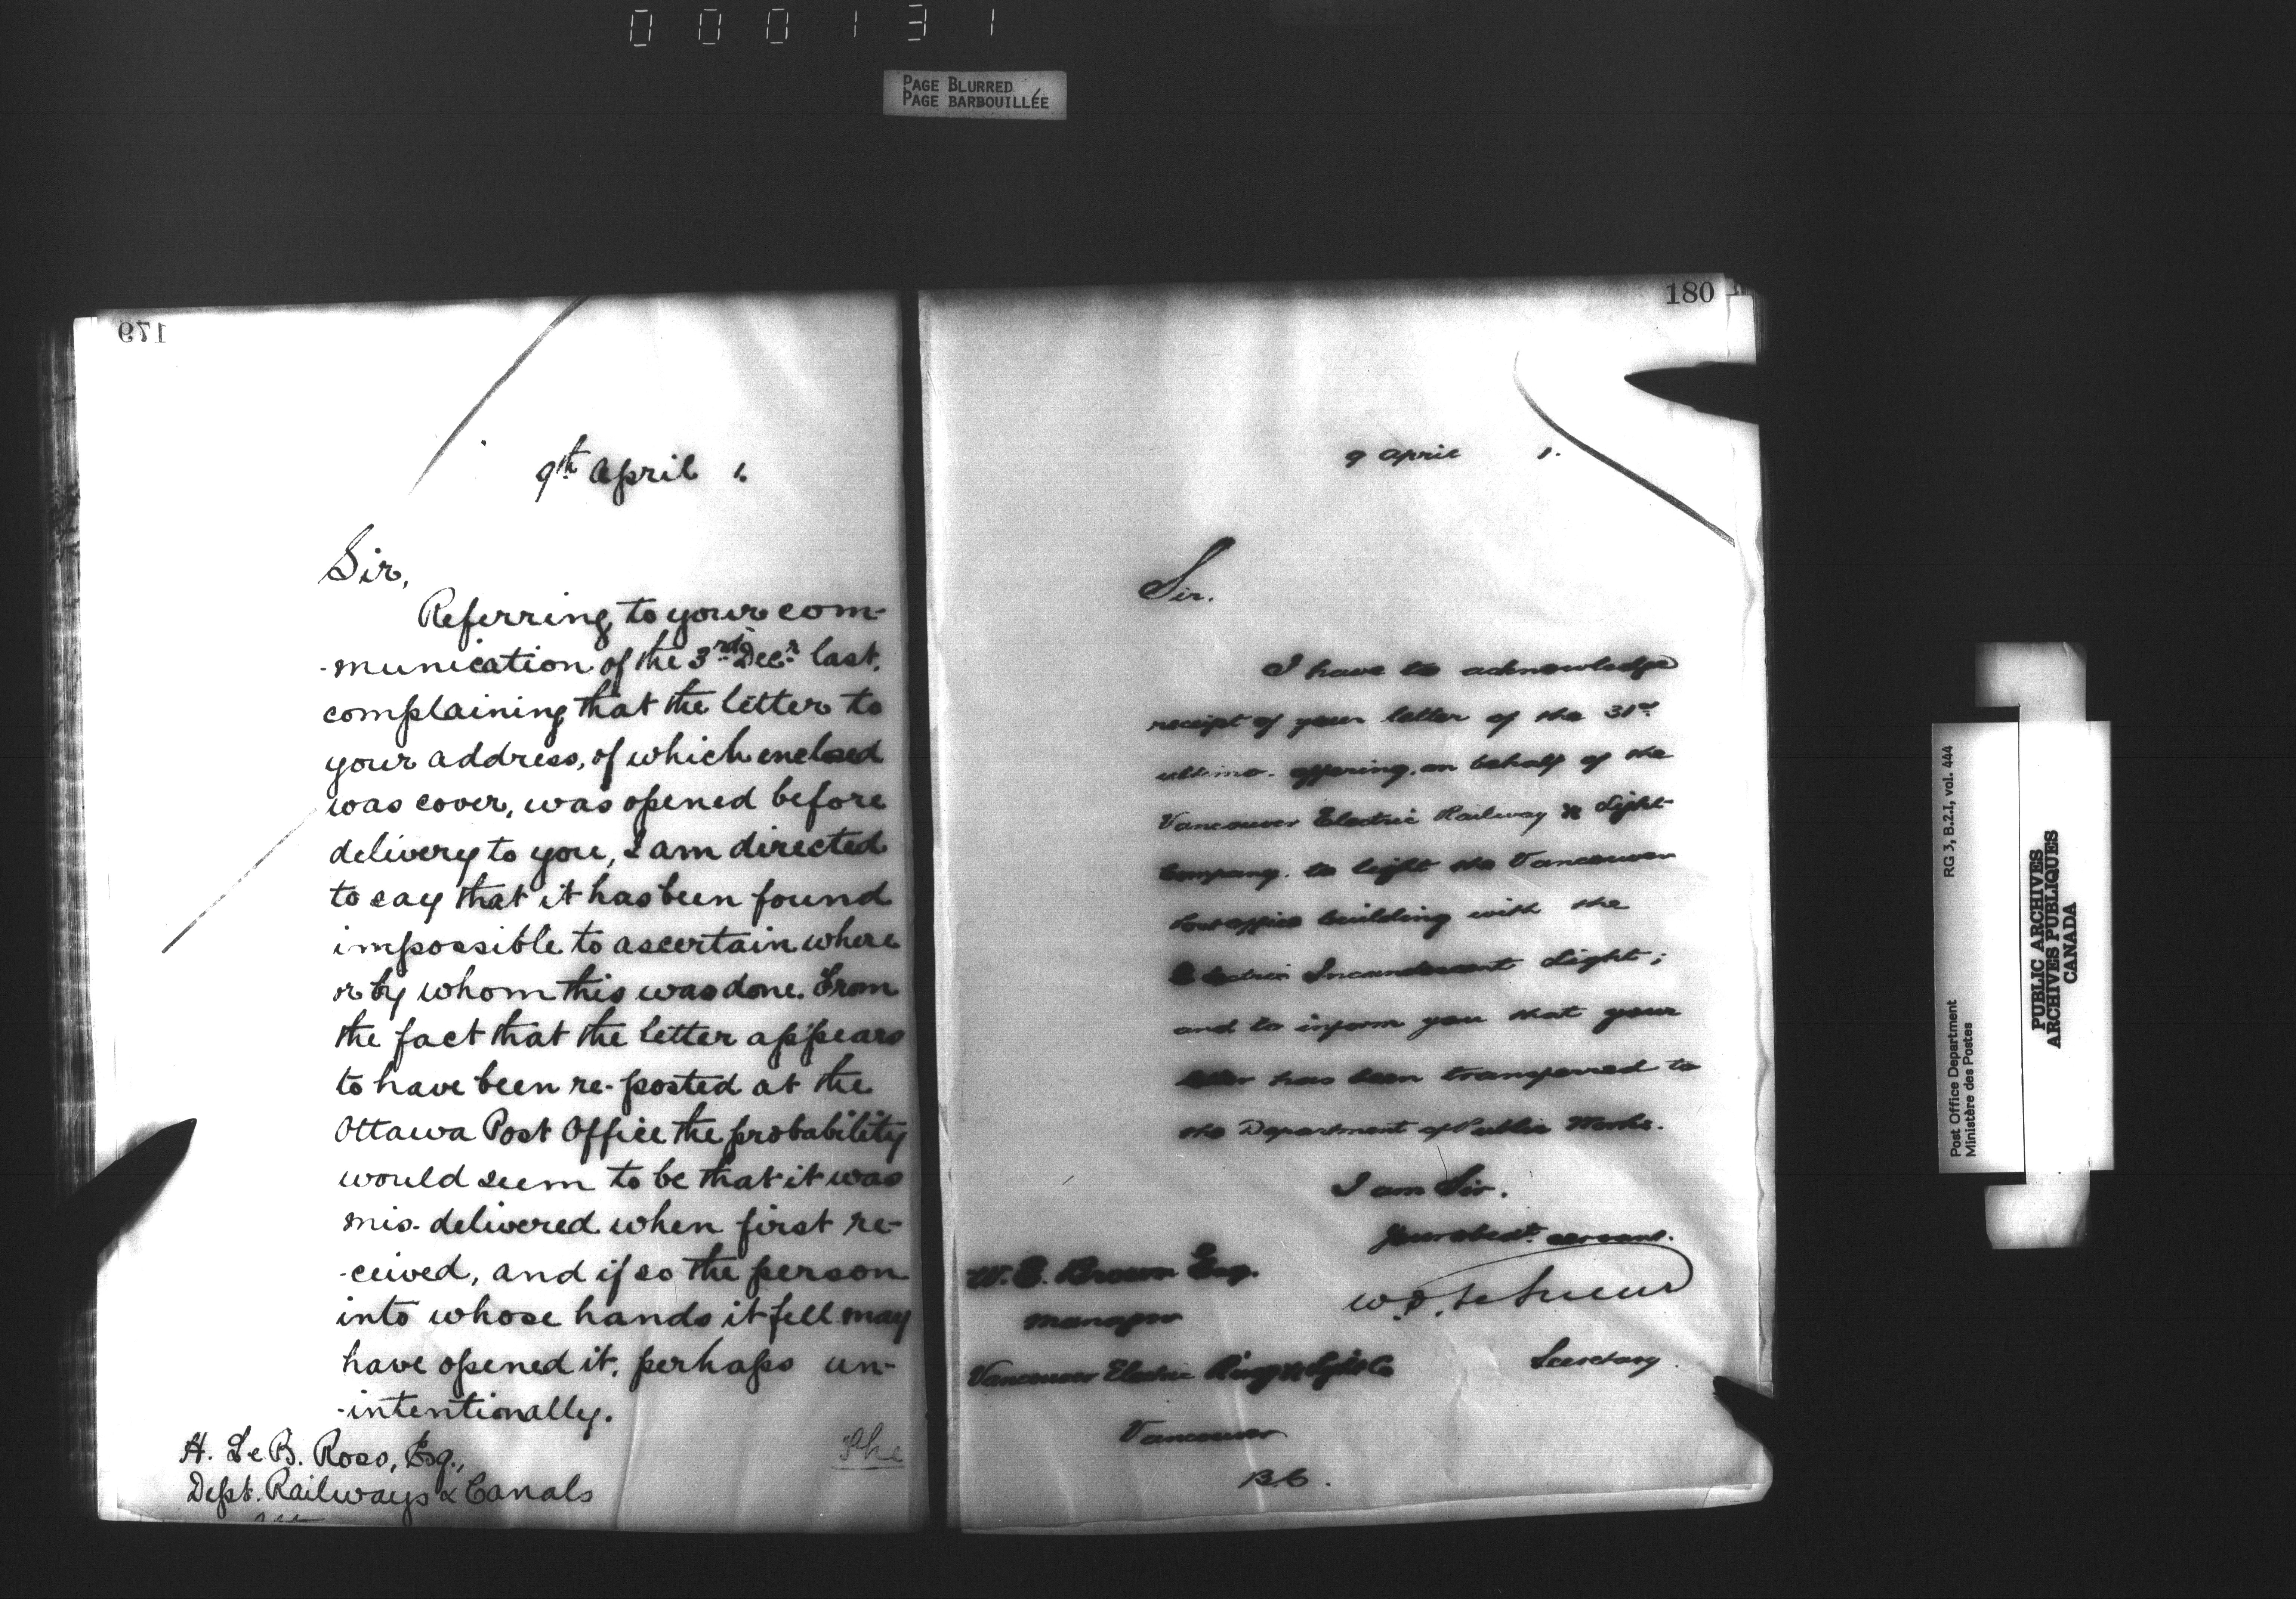 000131
PAGE BLURRED
PAGE BARBOUILLÉE
179
9th April 1.
Sir,
Referring to your com-
-munication of the 3rd Decr last,
complaining that the letter to
your address, of which enclosed
was cover, was opened before
delivery to you, I am directed
to say that it has been found
impossible to ascertain where
or by whom this was done. From
the fact that the letter appears
to have been re-posted at the
Ottawa Post Office the probability
would seem to be that it was
mis-delivered when first re-
-ceived, and if so the person
into whose hands it fell may
have opened it, perhaps un-
-intentionally.
H. Le B. Ross, Esq.,
Dept. Railways & Canals
The
180
9 April 1.
Sir.
I have to acknowledge
receipt of your letter of the 31st
ultimo. offering, on behalf of the
Vancouver Electric Railway & Light
Company. to light the Vancouver
Post office building with the
Electric Incandescent Light;
and to inform you that your
letter has been transferred to
the Department of Public Works.
I am Sir.
Your obedt. servant.
W. D. LeSueur
Secretary.
W. E. Brown Esq.
Manager
Vancouver Electric Rway & Light Co
Vancouver
B.C.
Post Office Department
Ministère des Postes
RG 3, B.2.I, vol. 444
PUBLIC ARCHIVES
ARCHIVES PUBLIQUES
CANADA